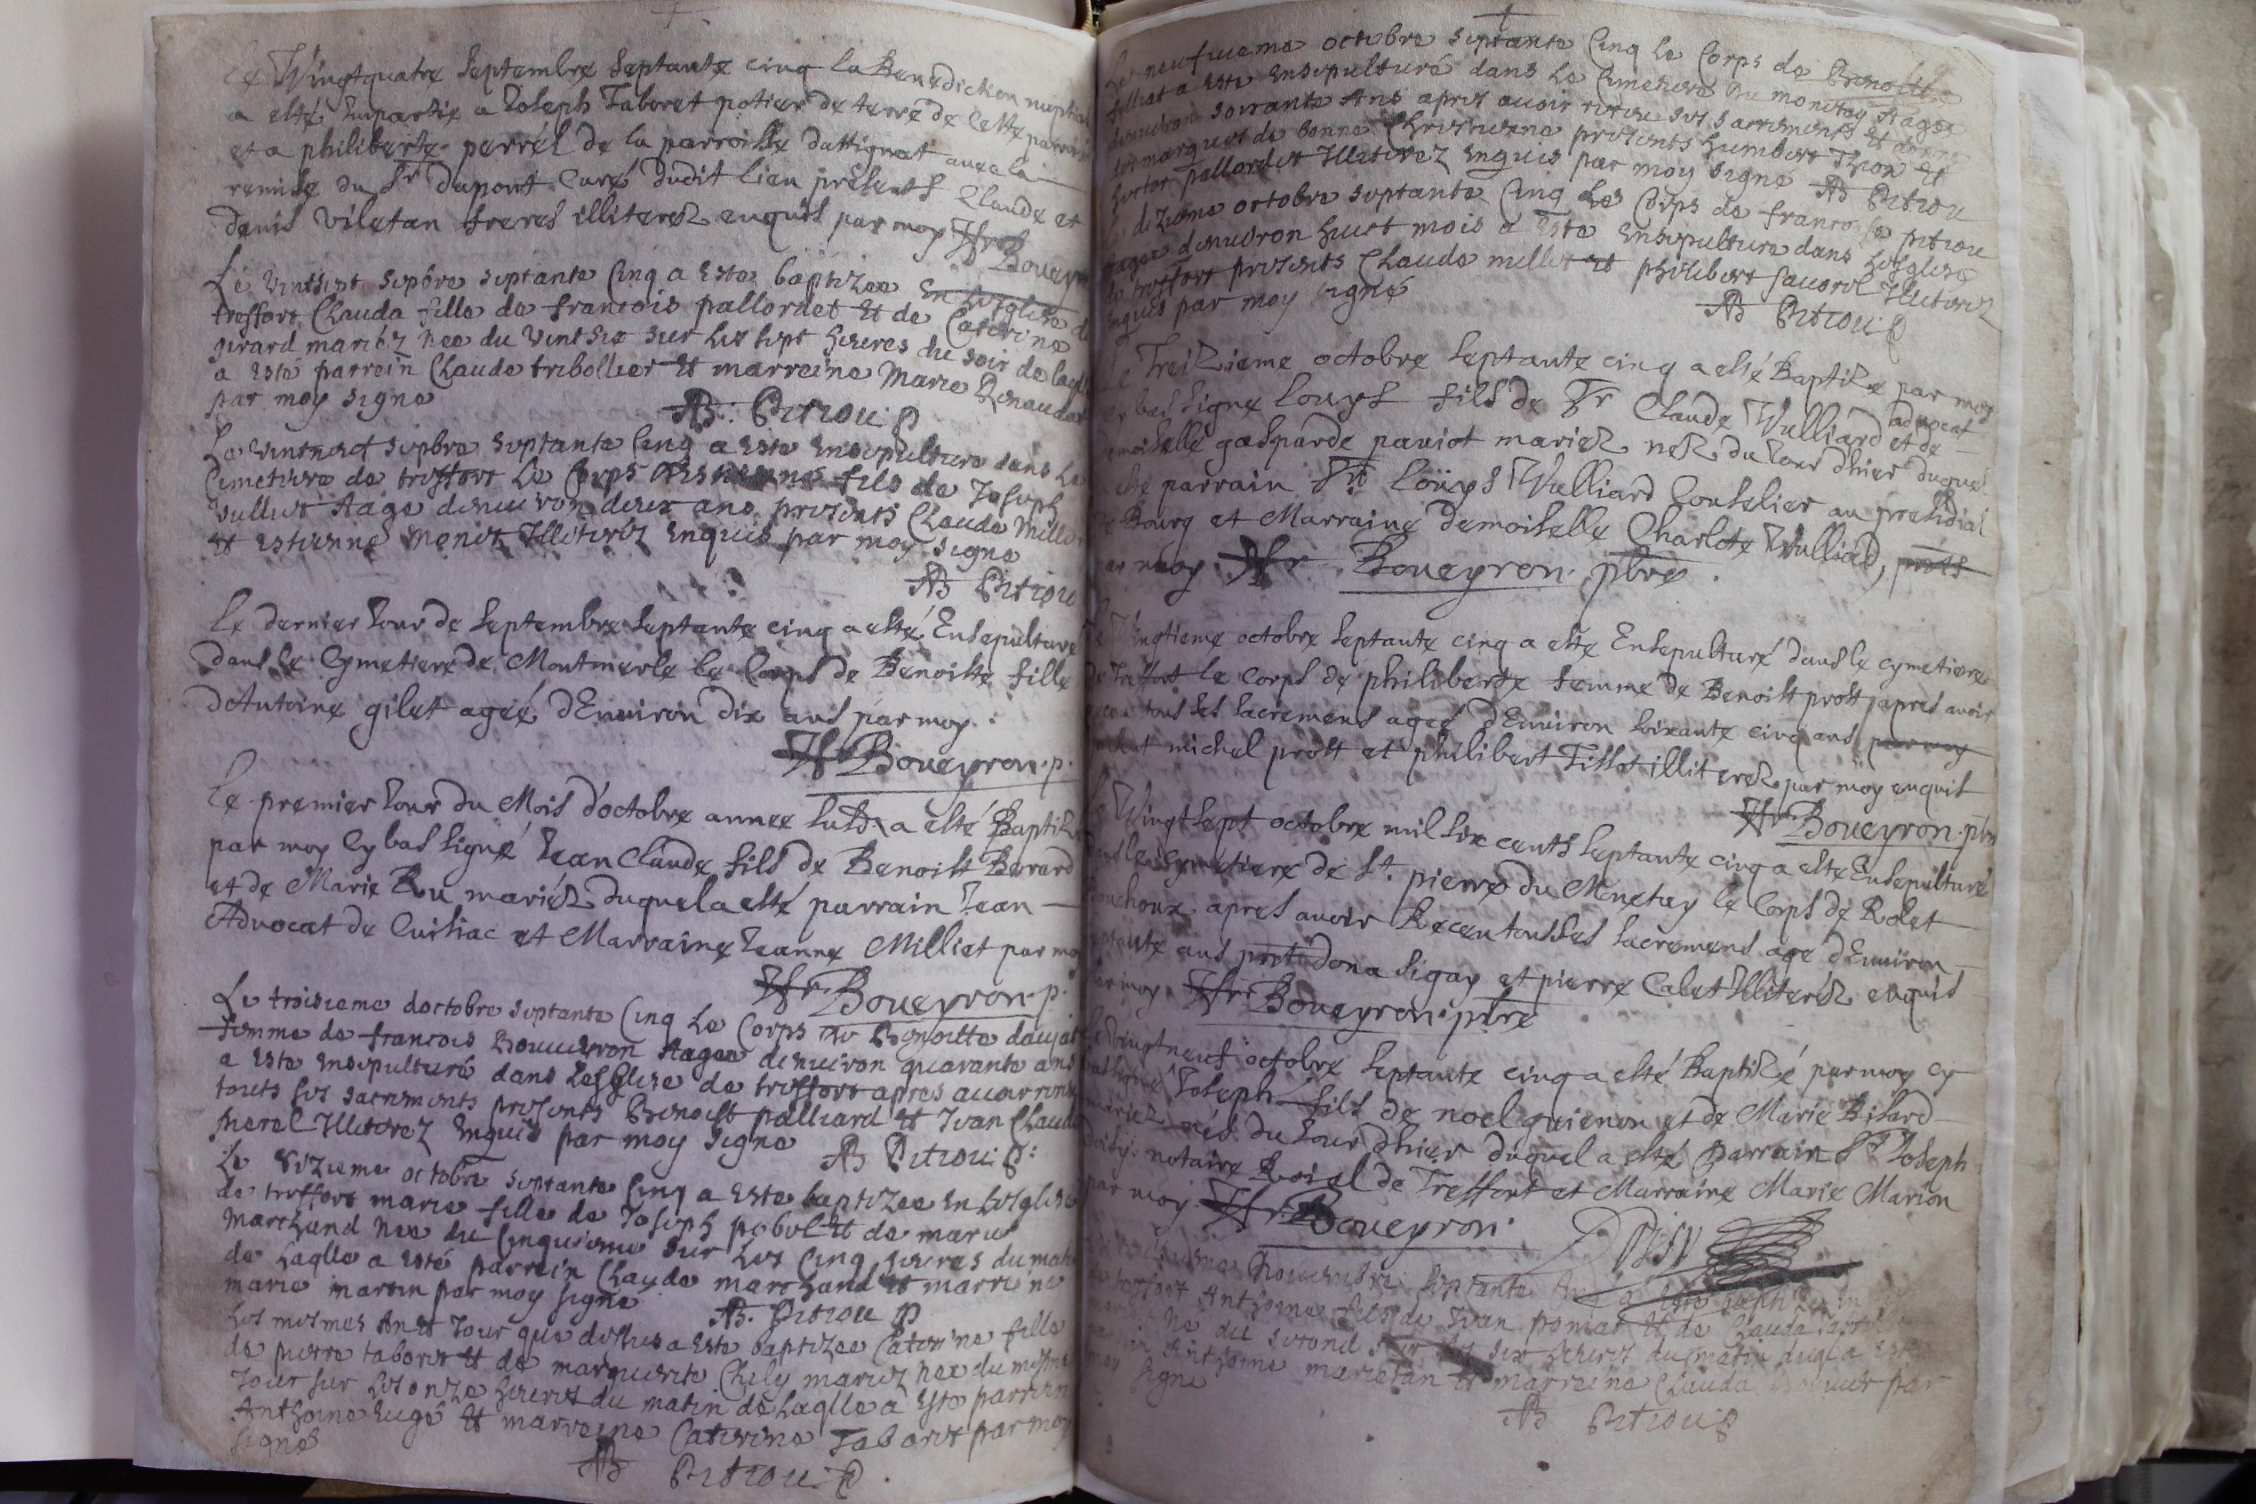 Le Vingtquatre Septembre septante cinq la Benediction nuptial
a esté Impartie a Joseph Taboret potier de terre de cette parroisse
et a philiberte perrél de la parroisse dattignat avec la
remise du Sr dupont Curé dudit lieu présents Claude et
denis viletan freres illiterez enquis par moy
Boueyron
Le vintsept sepbre septante Cinq a este baptizee En Lesglize de
treffort Clauda fille de francois pallordet Et de Caterine
girard mariéz nee du vintsix sur les sept heures du soir de laqlle
a esté parrein Claude tribollier Et marreine Marie Renaudat
par moy signe
AB. Petiou P
Le vintneuf sepbre septante Cinq a este Ensepulture dans Le
Cimetiere de treffort Le Corps fils de Joseph
vullier Aage denuiron deux ans presents Claude Millet
Et Estienne Illiterez Enquis par moy signe
AB Petiou
Le dernier Jour de Septembre septante cinq a esté Ensepulturé
dans le Cymetiere de Montmerle le Corps de Benoiste fille
d'Antoine gilet ageé d'Enuiron dix ans par moy
Boueyron. p.
Le premier Jour du Mois d'octobre annee susd. a esté Baptizé
par moy Cy bas signé Jean Claude fils de Benoist Berard
et de Marie Ru mariéz duquel a esté parrain Jean
Advocat de Cuisiac et Marraine Jeanne Milliet par moy
Boueyron. p.
Le troisieme doctobre septante Cinq Le Corps de Benoitte
femme de francois Boueyron Aagee denuiron quarante ans
a Este Ensepulturé dans Lesglize de treffort apres auoir rendu
touts ses sacrements presents Benoist palliard Et Jean Claude
Merel Illiterez Enquis par moy signe AB Petiou P.
Le sizieme octobre septante Cinq a Este baptizee En Lesglize
de treffort marie fille de Joseph pobel Et de marie
Marchand Nee du Cinquieme sur Les Cinq heures du matin
de Laqlle a Esté parrein Claude marchand Et marreine
marie martin par moy signe
AB. Petiou P
Les mesmes An Et Jour que dessus a Este baptizee Caterine fille
de pierre taboret Et de marguerite Chily mariez nee du mesme
Jour sur Les onze heures du matin de Laqlle a Este parrein
Anthoine Et marreine Caterine Taboret par moy
signe
AB Petiou P
Le neufuieme octobre septante Cinq Le Corps de Benoitte
a Este Ensepulturé dans Le Cimetiere du monetay Aagee
denuiron soixante Ans apres auoir receu ses sacrements Et donne
les marques de bonne Chrestienne presents humbert Et
pallordet Illiterez Enquis par moy signe AB Petiou
Le dizieme octobre septante Cinq Le Corps de francoise petiou
Aagee denuiron huict mois a Este Ensepulture dans Lesglize
de treffort presents Claude millet Et philibert Illiterez
Enquis par moy signe
AB Petiou P
Le Treizieme octobre septante cinq a esté Baptizé par moy
cy bas signe Louys fils de Sr Claude Vulliard advocat et de
demoiselle gasparde pauiot mariez nez du Jour dhier duquel
a esté parrain Sr Loüys Vulliard Conselier au presidial
de Bourg et Marraine demoiselle Charlote Vulliard,
par moy Boueyron. pbre.
Le Vingtieme octobre septante cinq a esté Ensepulturé dans le cymetiere
de Treffort le corps de philiberte femme de Benoist prost apres avoir
receu tous les sacremens ageé d'Enuiron soixante cinq ans
michel prost et philibert Tissot illiterez par moy enquis
Boueyron. pbre
Le Vingt sept octobre mil six cents septante cinq a esté Ensepulturé
dans le cymetiere de St. pierre du Menetay le Corps de Rolet
apres auoir Receu tous les sacremens age d'Enuiron
septante ans dona sigay et pierre Calet Illiteréz enquis
par moy Boueyron. pbre
Le Vingtneuf octobre septante cinq a esté Baptizé par moy cy
bas signé Joseph fils de noel guienon et de Marie Bisard
mariez nés du Jour dhier duquel a esté parrain Sr Joseph
notaire Roiel de Treffort et Marraine Marie Marion
par moy Boueyron.
Nouembre septante Cinq a Este baptizé En
de treffort Anthoine fils de Jean Et de Clauda
Né du second sur les six heures du matin duql a Esté
Anthoine marietan Et marreine Clauda par
moy signe
AB Petiou P